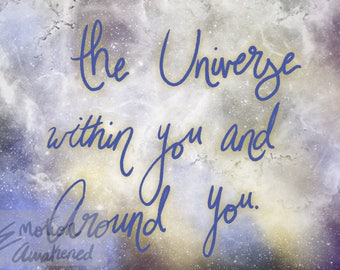 the Universe
within you and
Around You.
Emotion
Awakened